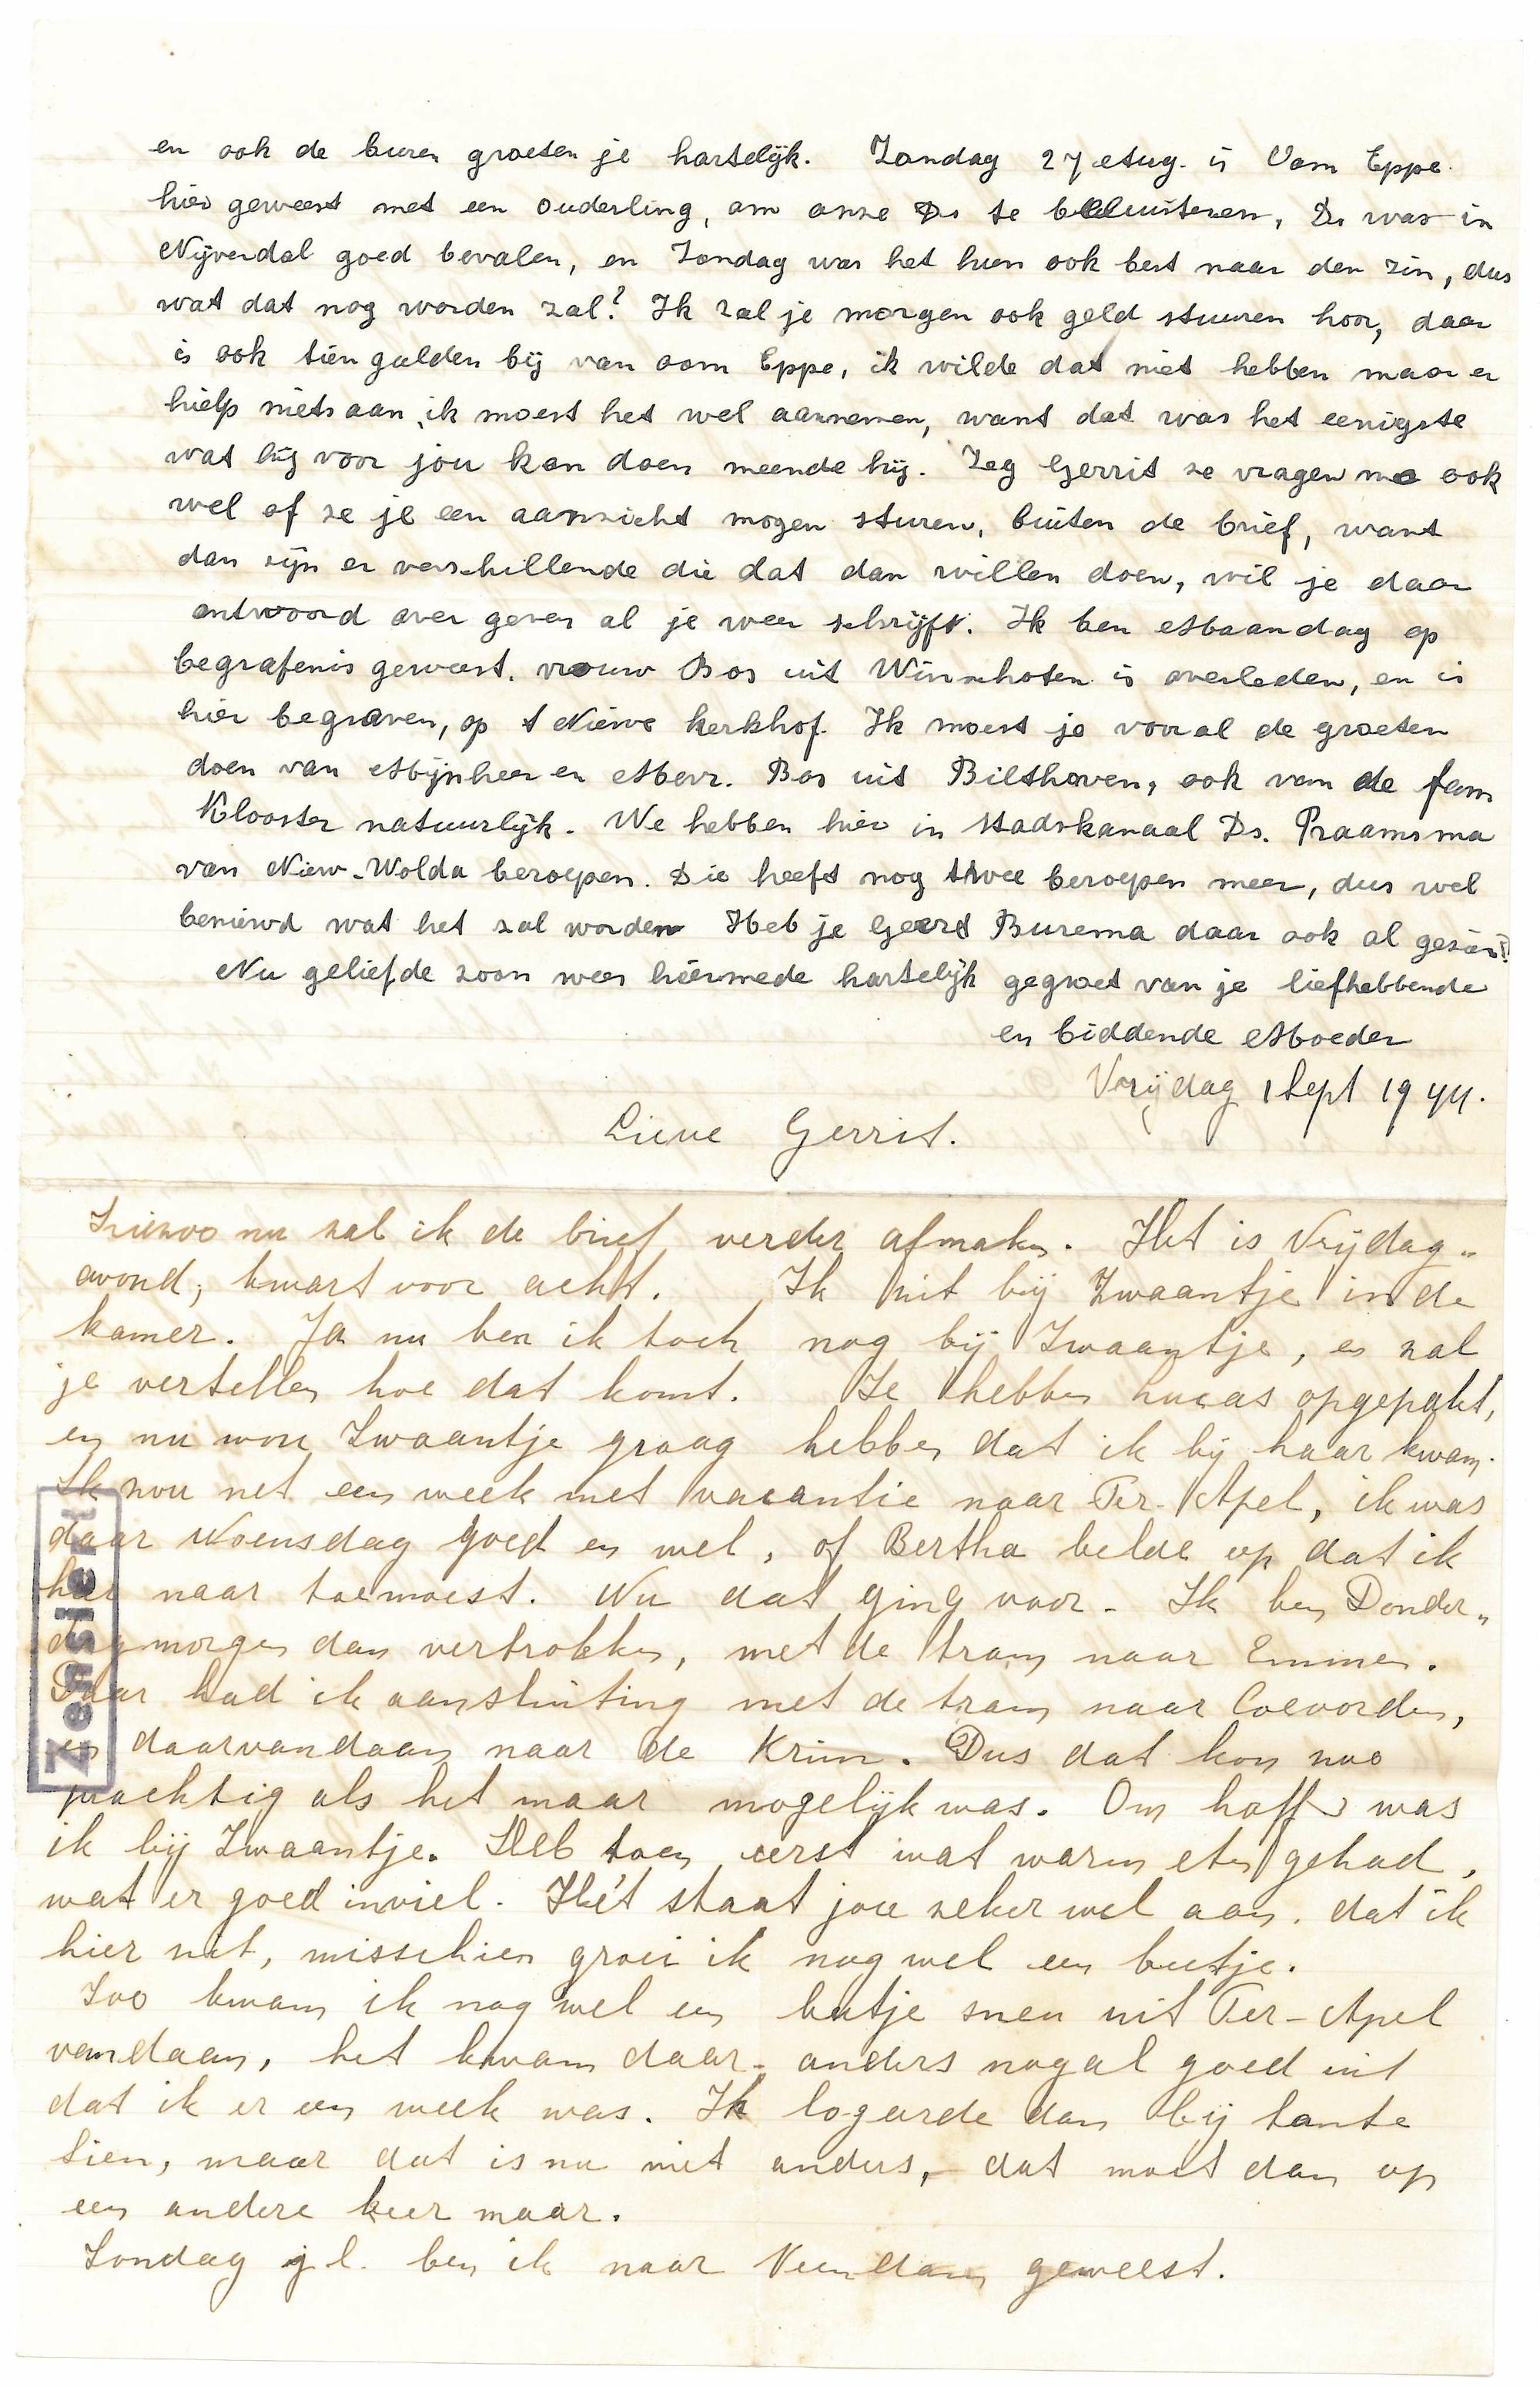 en ook de buren groeten je hartelijk. Zondag 27 Aug. is Oom Eppe
hier geweest met een ouderling, om onze Ds te beluisteren, Ds was in
Nijverdal goed bevalen, en Zondag was het hun ook best naar den zin, dus
wat dat nog worden zal? Ik zal je morgen ook geld stuuren hoor, daar
is ook tien gulden bij van oom Eppe, ik wilde dat niet hebben maar er
hielp niets aan, ik moest het wel aannemen, want dat was het eenigste
wat hij voor jou kon doen meende hij. Zeg Gerrit ze vragen me ook
wel of ze je een aanzicht mogen sturen, buiten de brief, want
dan zijn er verschillende die dat dan willen doen, wil je daar
antwoord over geven al je weer schrijft. Ik ben Maandag op
begrafenis geweest. vrouw Bos uit Winschoten is overleden, en is
hier begraven, op t Nieuwe kerkhof. Ik moest je vooral de groeten
doen van Mijnheer en Mevr. Bos uit Bilthoven, ook van de fam
Klooster natuurlijk. We hebben hier in Stadskanaal Ds. Praamsma
van Niew-Wolda beroepen. Die heeft nog twee beroepen meer, dus wel
beniewd wat het zal worden Heb je Geert Burema daar ook al gezien?
Nu geliefde zoon weer hiermede hartelijk gegroet van je liefhebbende
en biddende Moeder
Vrijdag 1 Sept 1944.
Lieve Gerrit.
nu zal ik de brief verder afmaken. Het is Vrijdag-
avond, kwart voor acht. Ik zit bij Zwaantje in de
kamer. Ja nu ben ik toch nog bij Zwaantje, en zal
je vertellen hoe dat komt. Ze hebben Lucas opgepakt,
en nu wou Zwaantje graag hebben dat ik bij haar kwam.
Ik zou net een week met vacantie naar Ter-Apel, ik was
daar Woensdag goed en wel, of Bertha belde op dat ik
hier naar toe moest. Nu dat ging voor. Ik ben Donder-
dagmorgen dan vertrokken, met de tram naar Emmen.
Daar had ik aansluiting met de tram naar Coevorden,
en daarvandaan naar de Krim. Dus dat kon zoo
prachtig als het maar mogelijk was. Om half 3 was
ik bij Zwaantje. Heb toen eerst wat warm eten gehad,
wat er goed inviel. Hét staat jou zeker wel aan, dat ik
hier zit, misschien groei ik nog wel een beetje.
Zoo kwam ik nog wel een beetje sneu uit Ter-Apel
vandaan, het kwam daar anders nogal goed uit
dat ik er een week was. Ik logeerde dan bij tante
Sien, maar dat is nu niet anders, dat moet dan op
een andere keer maar.
Zondag j l. ben ik naar Veendam geweest.
Zensiert